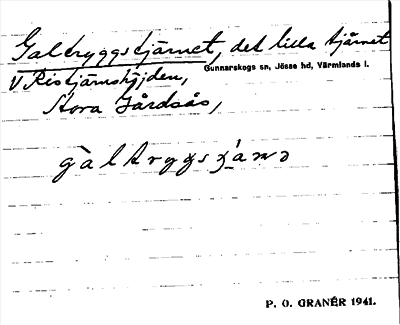 Galtryggstjärnet, det lilla tjärnet
Gunnarskogs sn, Jösse hd, Värmlands l.
V Ristjärnshöjden,
Stora Gårdsås,
P. O. GRANÉR 1941.